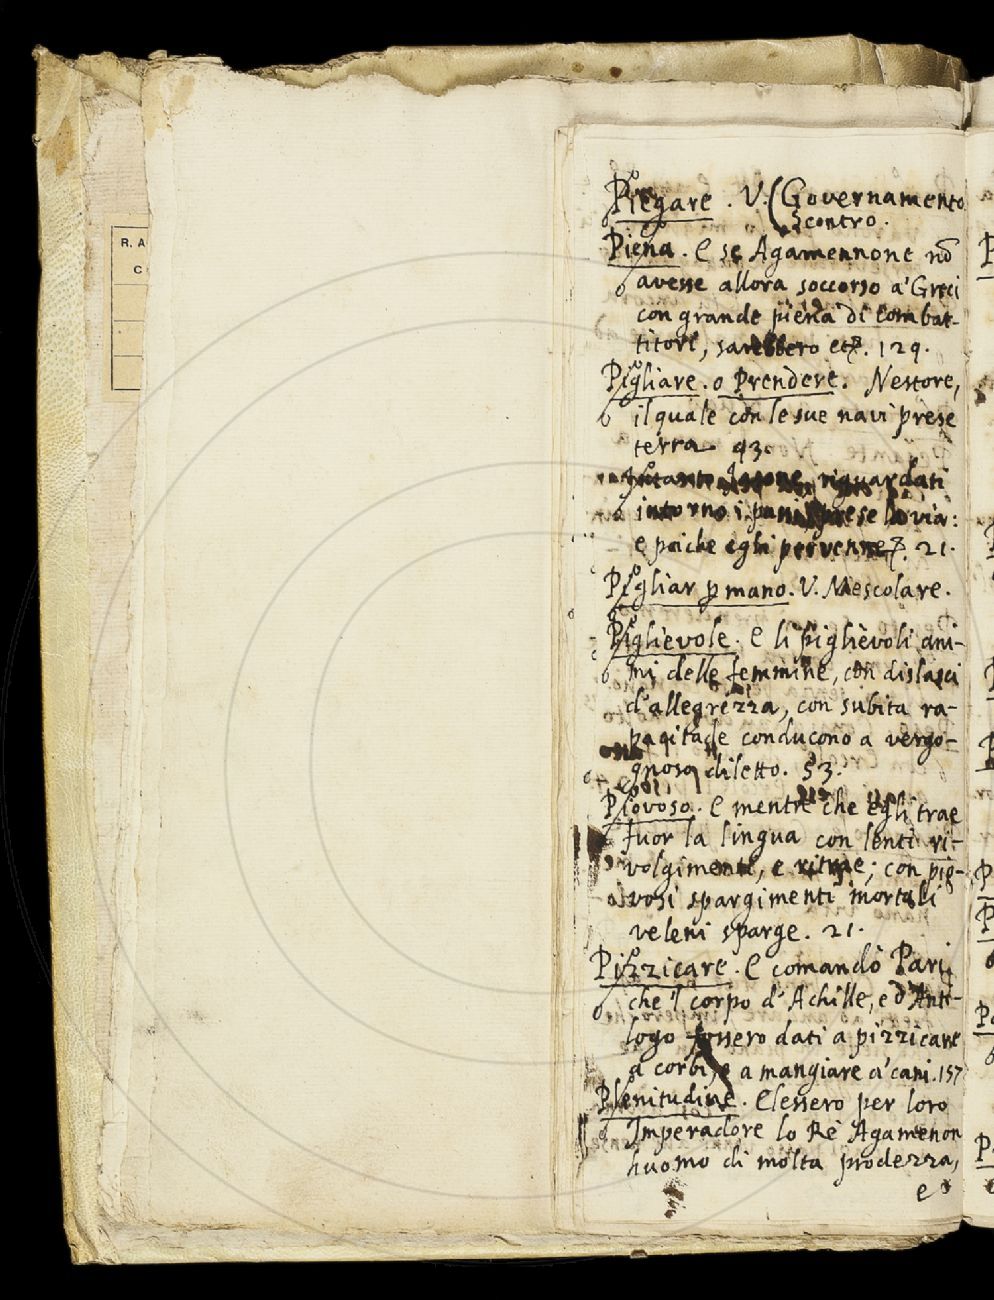 R. A
C
Piegare. V. (Governamento
Scontro.
Piena. E se Agamennone nõ
avesse allora soccorso a' Greci
con grande piena di combat-
titori, sarebbero etc. 129.
Pigliare. o Prendere. Nestore,
il quale con le sue navi prese
terra 93.
Intanto Iasone, riguardati
intorno i pani, prese la via:
e poiche egli pervenne 21.
Pigliar p mano. V. Mescolare.
Piglievole. E li piglievoli ani-
mi delle femmine, con dislasci
d'allegrezza, con subita ra-
pacitade conducono a vergo-
gnoso diletto. 53.
Piovoso. E mentre che egli trae
fuor la lingua con lenti ri-
volgimenti, e ; con pio-
vosi spargimenti mortali
veleni sparge. 21.
Pizzicare. E comandò Pari,
che 'l corpo d'Achille, e d'Anti-
logo fossero dati a pizzicare
a corbi, e a mangiare a' cani. 157
Plenitudine. Elessero per loro
Imperadore lo Rè Agamenon
huomo di molta prodezza,
e